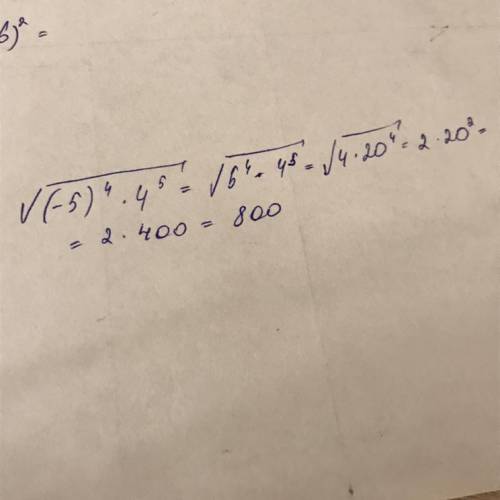 6)² =
√((-5)⁴ · 4⁵) = √(5⁴ · 4⁵) = √(4 · 20⁴) = 2 · 20² =
= 2 · 400 = 800